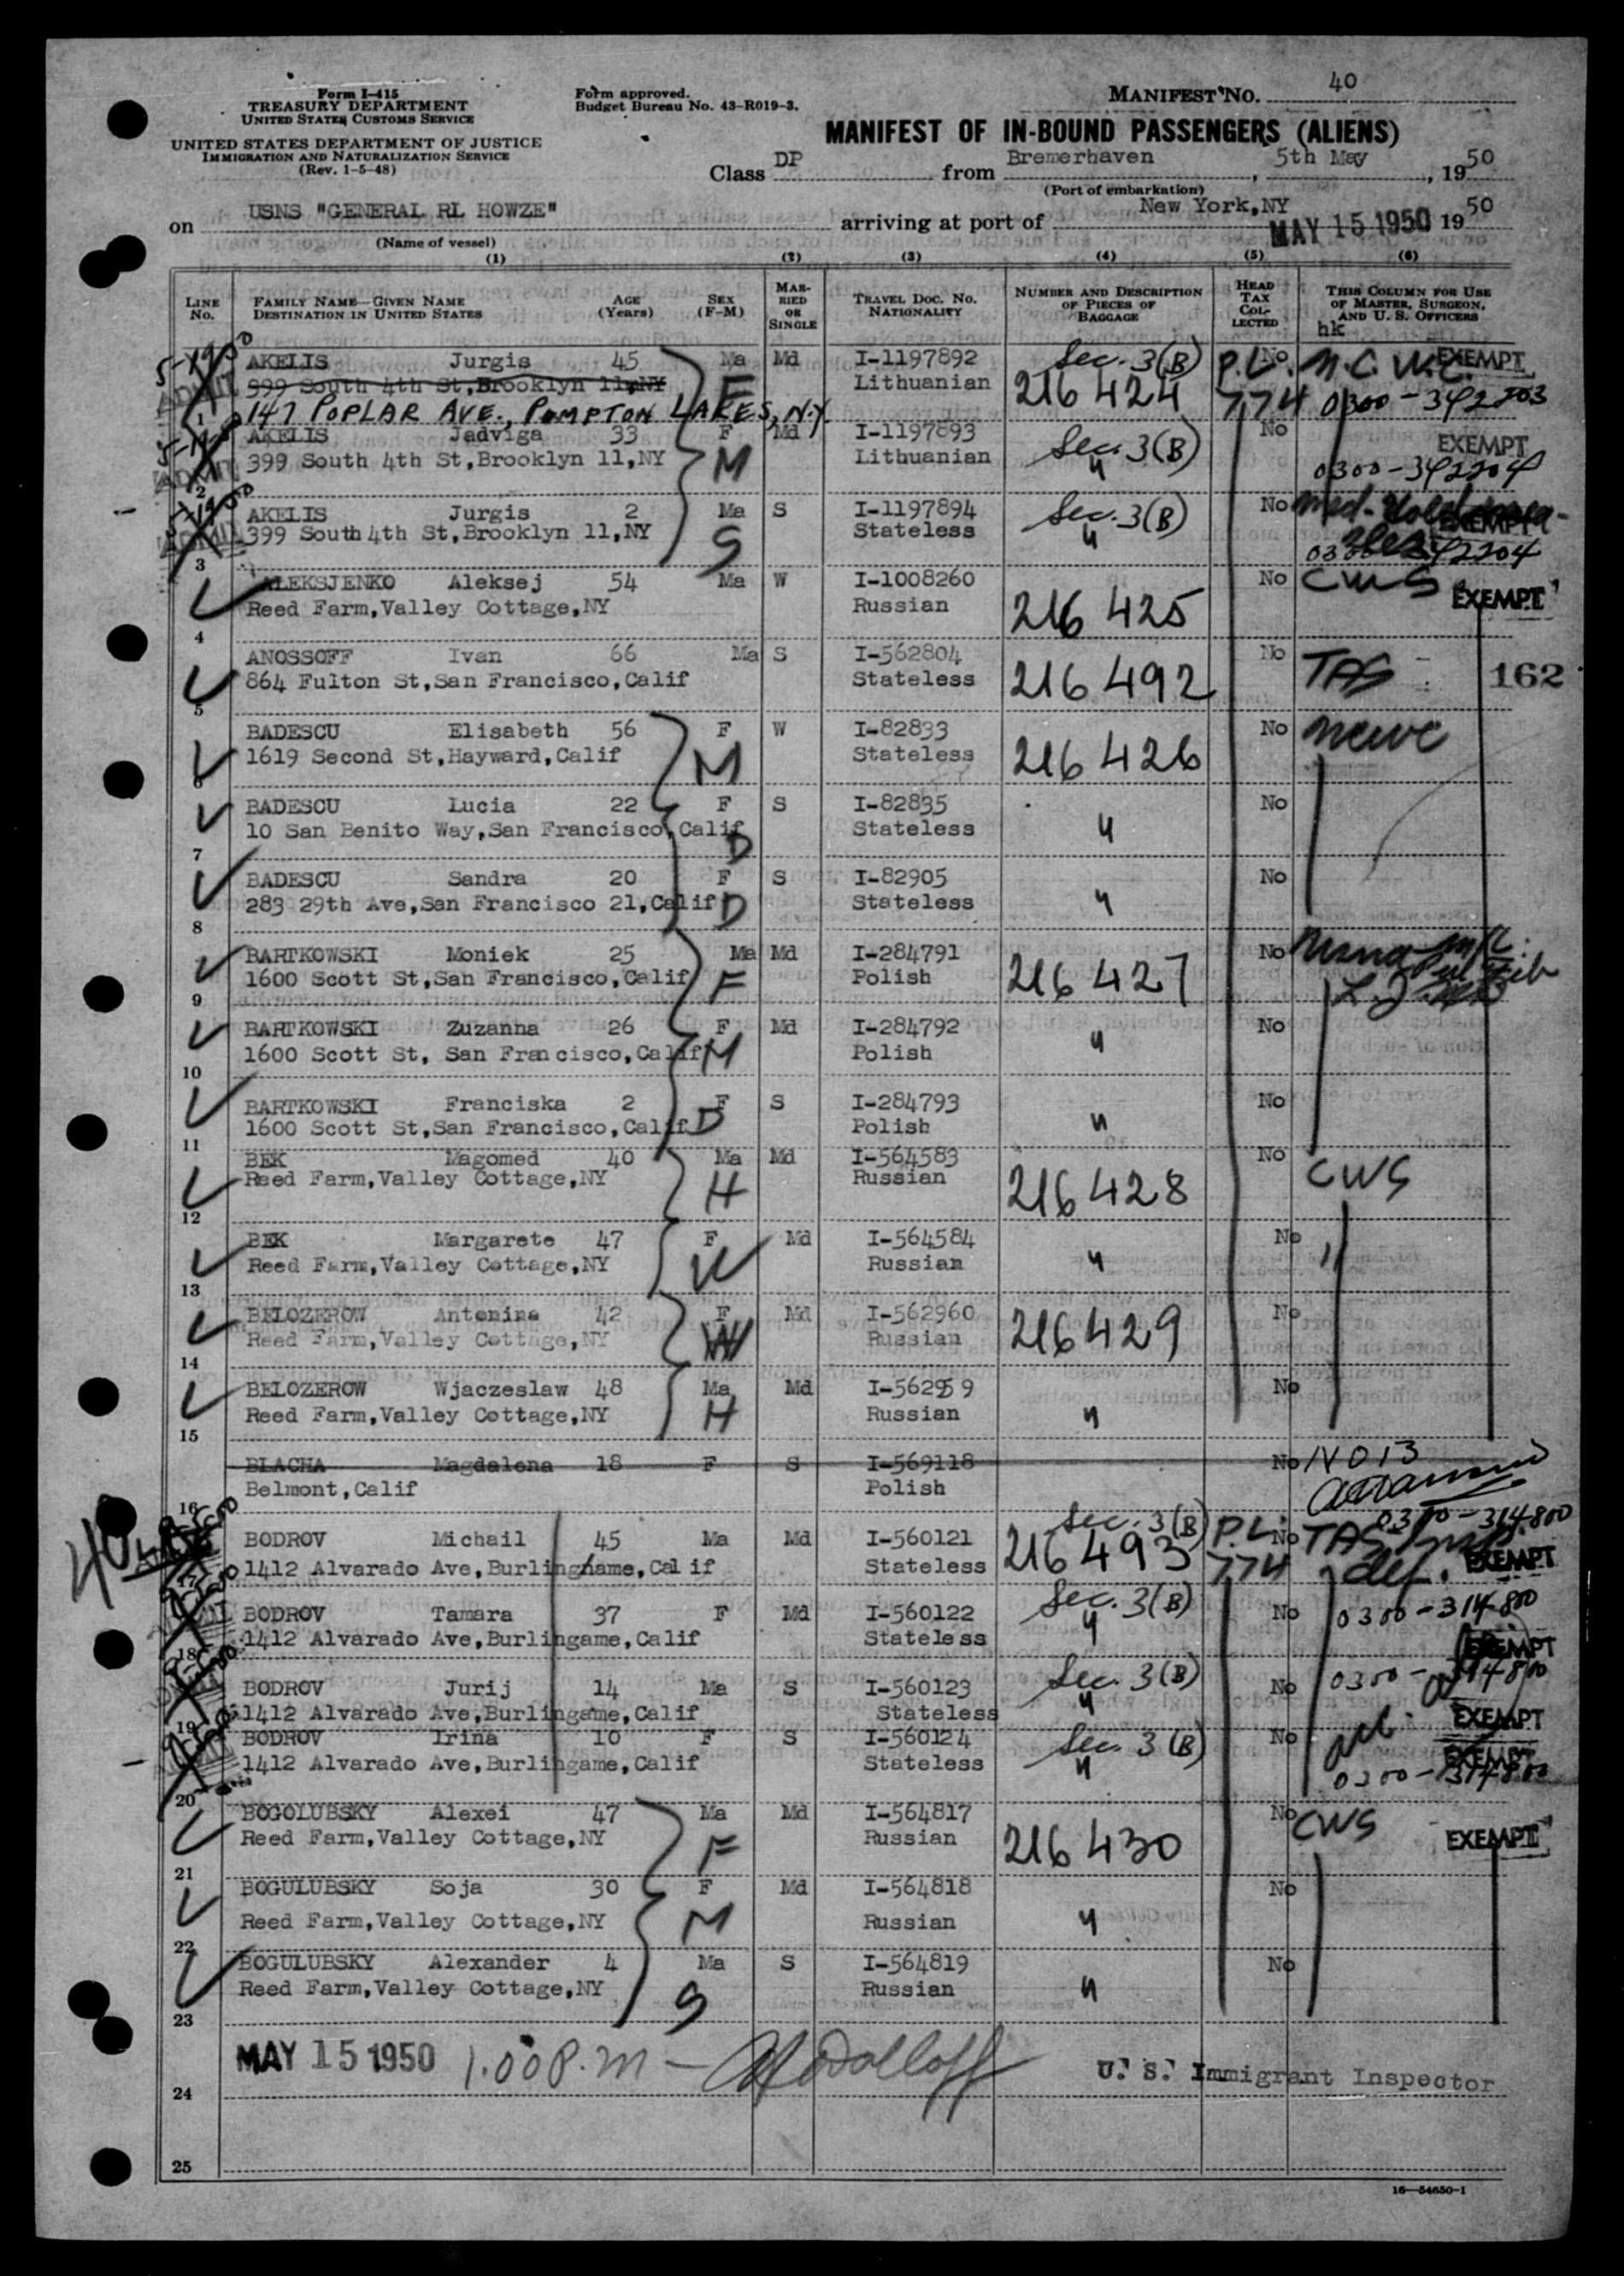 Form I-415
TREASURY DEPARTMENT
UNITED STATES CUSTOMS SERVICE
UNITED STATES DEPARTMENT OF JUSTICE
IMMIGRATION AND NATURALIZATION SERVICE
(Rev. 1-5-48)
Form approved.
Budget Bureau No. 43-R019-3.
MANIFEST NO. 40
MANIFEST OF IN-BOUND PASSENGERS (ALIENS)
Class DP from Bremerhaven, 5th May, 1950
(Port of embarkation)
on USNS "GENERAL RL HOWZE" arriving at port of New York,NY MAY 15 1950 1950
(Name of vessel)
(1) (2) (3) (4) (5) (6)
LINE No. FAMILY NAME—GIVEN NAME DESTINATION IN UNITED STATES AGE (Years) SEX (F-M) MARRIED OR SINGLE TRAVEL DOC. NO. NATIONALITY NUMBER AND DESCRIPTION OF PIECES OF BAGGAGE HEAD TAX COLLECTED THIS COLUMN FOR USE OF MASTER, SURGEON, AND U. S. OFFICERS
hk
AKELIS Jurgis 45 Ma Md I-1197892 Sec. 3(B) P.L. No N.C.W.C. EXEMPT
399 South 4th St,Brooklyn 11,NY F Lithuanian 216 424 774 0300-342203
1 147 POPLAR AVE., POMPTON LAKES, N.Y.
AKELIS Jadviga 33 F Md I-1197893 Sec. 3(B) No EXEMPT
399 South 4th St,Brooklyn 11,NY M Lithuanian " 0300-342204
2
AKELIS Jurgis 2 Ma S I-1197894 Sec. 3(B) No Med. Hold EXEMPT
399 South 4th St,Brooklyn 11,NY S Stateless "
3
ALEKSJENKO Aleksej 54 Ma W I-1008260 No CWS EXEMPT
Reed Farm,Valley Cottage,NY Russian 216 425
4
ANOSSOFF Ivan 66 Ma S I-562804 No TAS 162
864 Fulton St,San Francisco,Calif Stateless 216 492
5
BADESCU Elisabeth 56 F W I-82833 No NCWC
1619 Second St,Hayward,Calif M Stateless 216 426
6
BADESCU Lucia 22 F S I-82835 No
10 San Benito Way,San Francisco,Calif D Stateless "
7
BADESCU Sandra 20 F S I-82905 No
283 29th Ave,San Francisco 21,Calif D Stateless "
8
BARTKOWSKI Moniek 25 Ma Md I-284791 No
1600 Scott St,San Francisco,Calif F Polish 216 427
9
BARTKOWSKI Zuzanna 26 F Md I-284792 No
1600 Scott St, San Francisco,Calif M Polish "
10
BARTKOWSKI Franciska 2 F S I-284793 No
1600 Scott St,San Francisco,Calif D Polish "
11
BEK Magomed 40 Ma Md I-564583 No CWS
Reed Farm,Valley Cottage,NY H Russian 216 428
12
BEK Margarete 47 F Md I-564584 No "
Reed Farm,Valley Cottage,NY W Russian "
13
BELOZEROW Antonina 42 F Md I-562960 No
Reed Farm,Valley Cottage,NY W Russian 216 429
14
BELOZEROW Wjaczeslaw 48 Ma Md I-562959 No
Reed Farm,Valley Cottage,NY H Russian "
15
BLACHA Magdalena 18 F S I-569118 No
Belmont,Calif Polish
16
BODROV Michail 45 Ma Md I-560121 Sec. 3(B) P.L. No TAS 0300-314800
1412 Alvarado Ave,Burlinghame,Calif Stateless 216 493 774 def. EXEMPT
17
BODROV Tamara 37 F Md I-560122 Sec. 3(B) No 0300-314800
1412 Alvarado Ave,Burlingame,Calif Stateless " EXEMPT
18
BODROV Jurij 14 Ma S I-560123 Sec. 3(B) No 0300-314800
1412 Alvarado Ave,Burlingame,Calif Stateless " EXEMPT
19
BODROV Irina 10 F S I-560124 Sec. 3(B) No EXEMPT
1412 Alvarado Ave,Burlingame,Calif Stateless " 0300-314800
20
BOGOLUBSKY Alexei 47 Ma Md I-564817 No CWS
Reed Farm,Valley Cottage,NY F Russian 216 430 EXEMPT
21
BOGULUBSKY Soja 30 F Md I-564818 No
Reed Farm,Valley Cottage,NY M Russian "
22
BOGULUBSKY Alexander 4 Ma S I-564819 No
Reed Farm,Valley Cottage,NY S Russian "
23
MAY 15 1950 1.00 P.M - U. S. Immigrant Inspector
24
25
16—54650-1